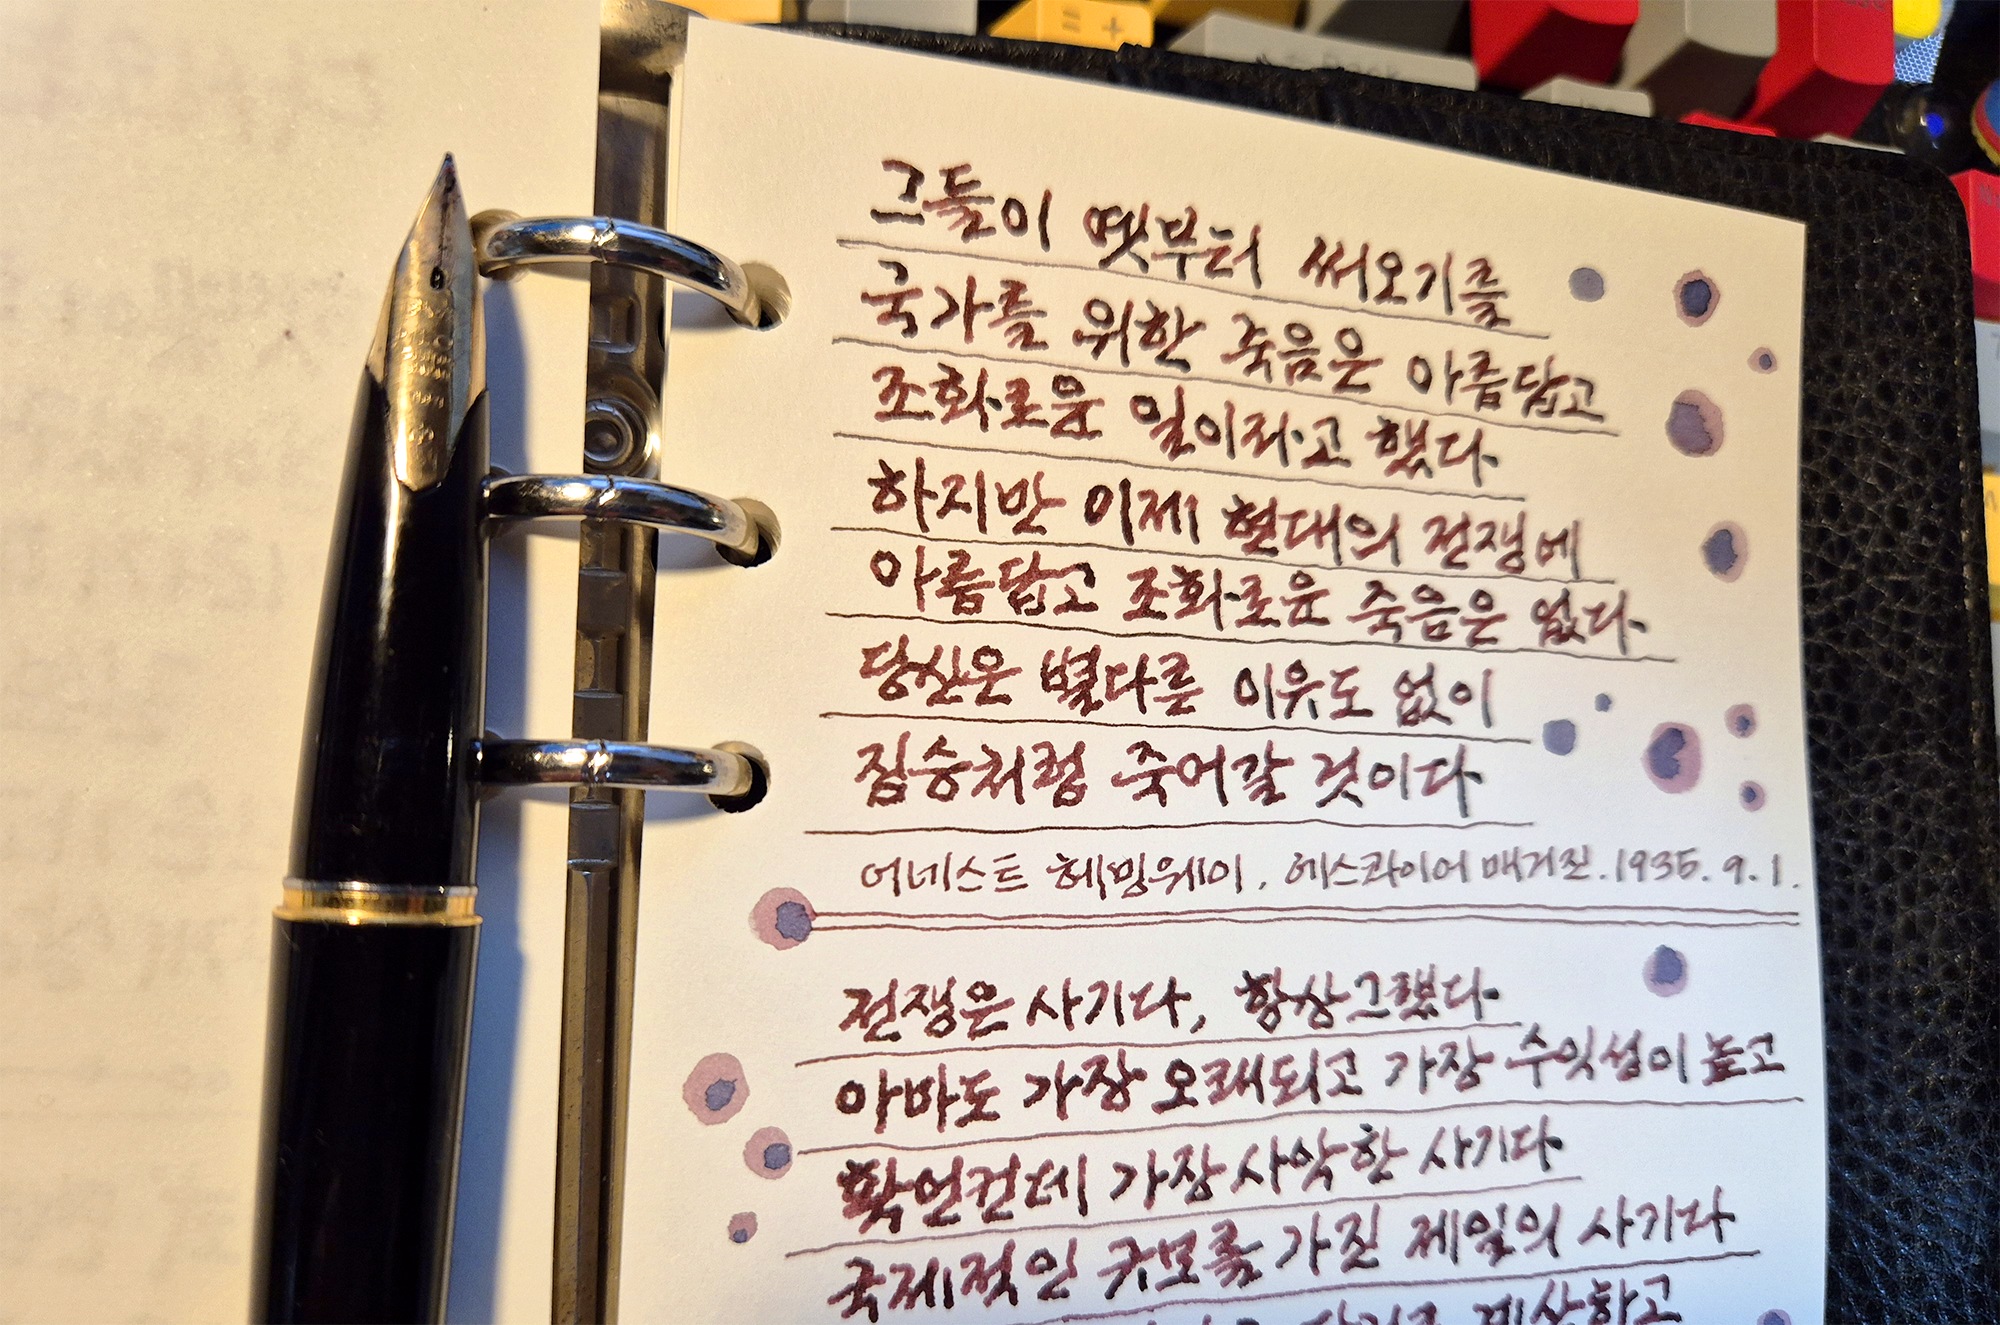 = +
Back
그들이 옛부터 써오기를
국가를 위한 죽음은 아름답고
조화로운 일이라고 했다
하지만 이제 현대의 전쟁에
아름답고 조화로운 죽음은 없다
당신은 별다른 이유도 없이
짐승처럼 죽어갈 것이다
어네스트 헤밍웨이, 에스콰이어 매거진.1935.9.1.
전쟁은 사기다, 항상그랬다
아마도 가장 오래되고 가장 수익성이 높고
확언컨데 가장 사악한 사기다
국제적인 규모를 가진 제일의 사기다
계산하고